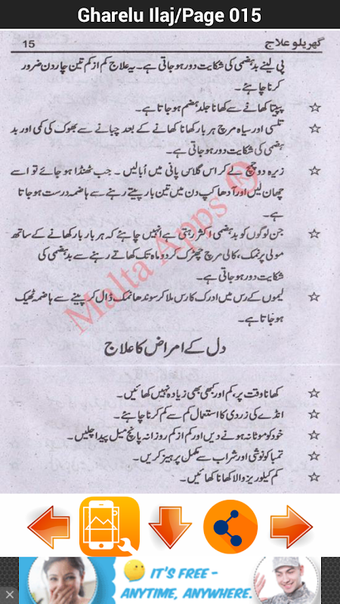 Gharelu Ilaj/Page 015
گھریلو علاج 15
پی لینے بدہضمی کی شکایت دور ہو جاتی ہے۔ یہ علاج کم از کم تین چار دن ضرور
کرنا چاہئے۔
☆ پپیتا کھانے سے کھانا جلد ہضم ہو جاتا ہے۔
☆ تلسی اور سیاہ مرچ ہر بار کھانا کھانے کے بعد چبانے سے بھوک کی کمی اور بد
ہضمی کی شکایت دور ہو جاتی ہے۔
☆ زیرہ دو چمچ لے کر اس گلاس پانی میں اُبالیں۔ جب ٹھنڈا ہو جائے تو اسے
چھان لیں اور آدھا کپ دن میں تین بار پیتے رہنے سے ہاضمہ درست ہو جاتا
ہے۔
☆ جن لوگوں کو بدہضمی اکثر رہتی ہے انہیں چاہئے کہ ہر بار بار کھانے کے ساتھ
مولی پر نمک، کالی مرچ چھڑک کر دو ماہ تک کھاتے رہنے سے بدہضمی کی
شکایت دور ہو جاتی ہے۔
☆ لیموں کے رس میں ادرک کا رس ملا کر سوندھا نمک ڈال کر پینے سے ہاضمہ ٹھیک
ہو جاتا ہے۔
Malta Apps
دل کے امراض کا علاج
☆ کھانا وقت پر، کم اور کبھی بھی زیادہ نہیں کھائیں۔
☆ انڈے کی زردی کا استعمال کم سے کم کرنا چاہئے۔
☆ خود کو موٹا نہ ہونے دیں اور کم از کم روزانہ پانچ میل پیدا چلیں۔
☆ تمباکو نوشی اور شراب سے مکمل پرہیز کریں۔
☆ کم کیلوریز والا کھانا کھائیں۔
IT'S FREE -
ANYTIME, ANYWHERE.